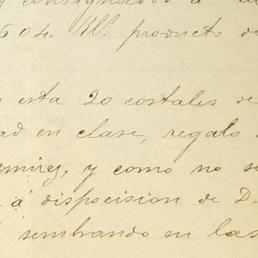 y consignados a
604. El producto de
esta 20 costales de
ad en clase, regalo
emirez, y como no se
a disposicion de D.
sembrando en las